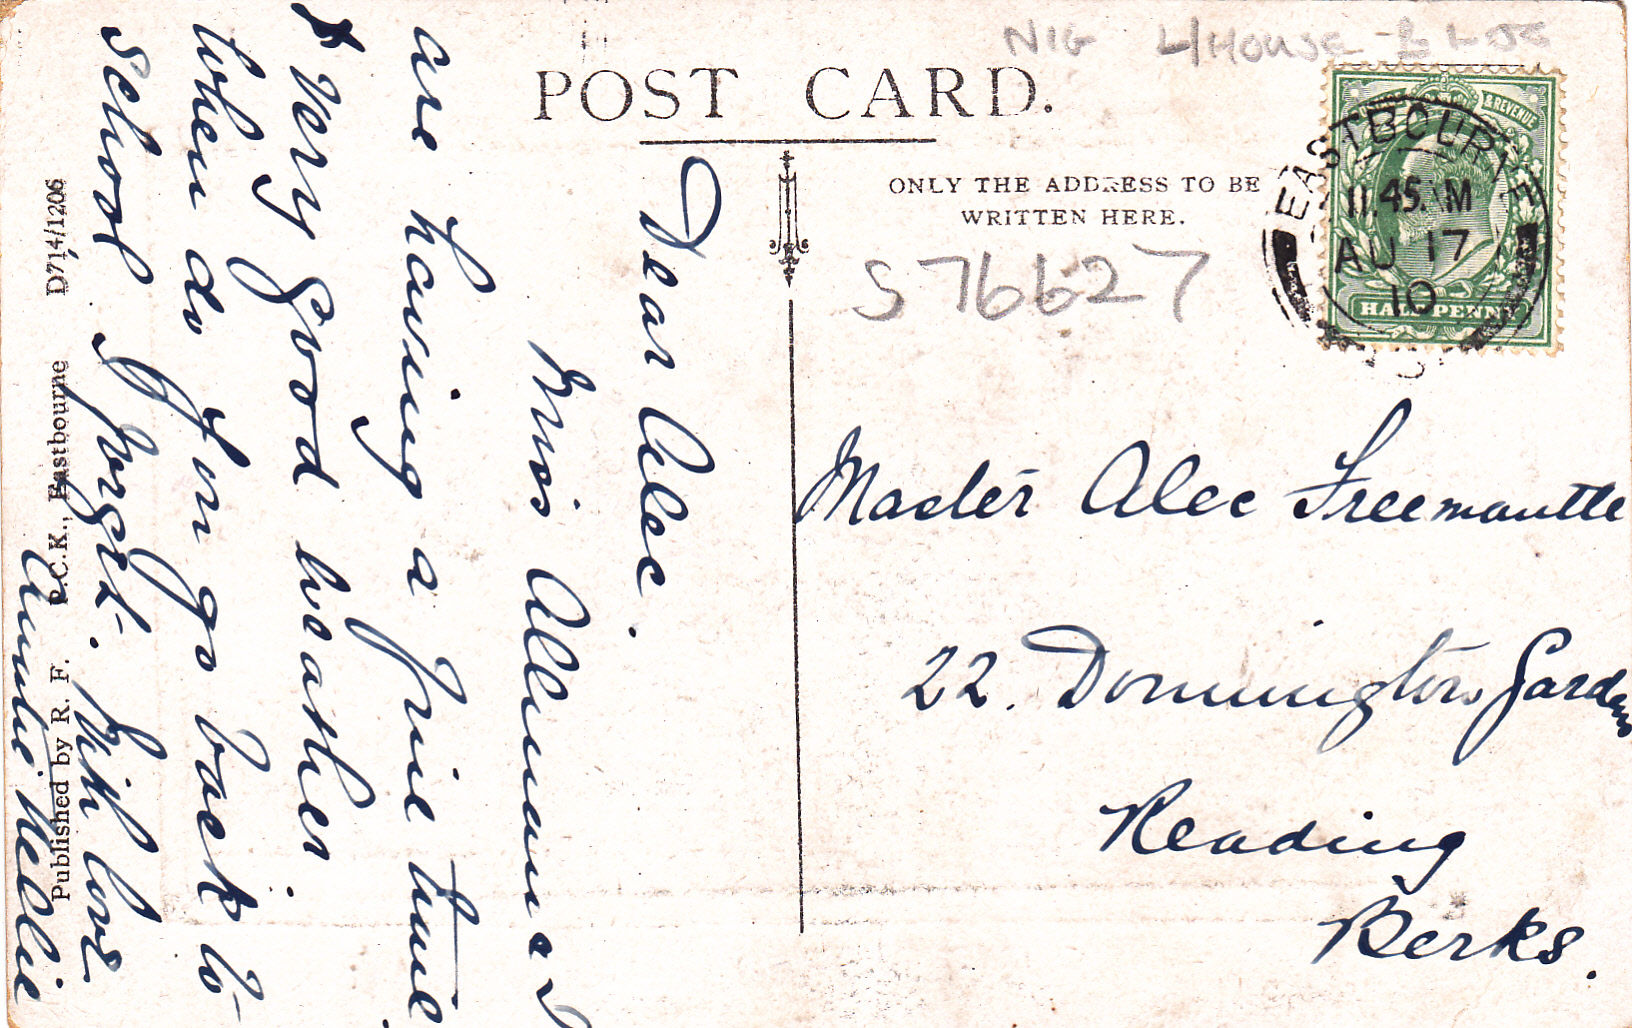 NIG L/HOUSE
POST CARD.
ONLY THE ADDRESS TO BE
WRITTEN HERE.
S 76627
& REVENUE
HALFPENNY
EASTBOURNE
11.45 AM
AU 17
10
Master Alec Freemantle
22. Donnington Gardens
Reading
Berks.
Dear Alec.
Miss Allman & I
are having a fine time
& very good weather.
When do you go back to
school I forget. With love
Auntie Nellie
Published by R. F. P.C.K., Eastbourne D714/1206